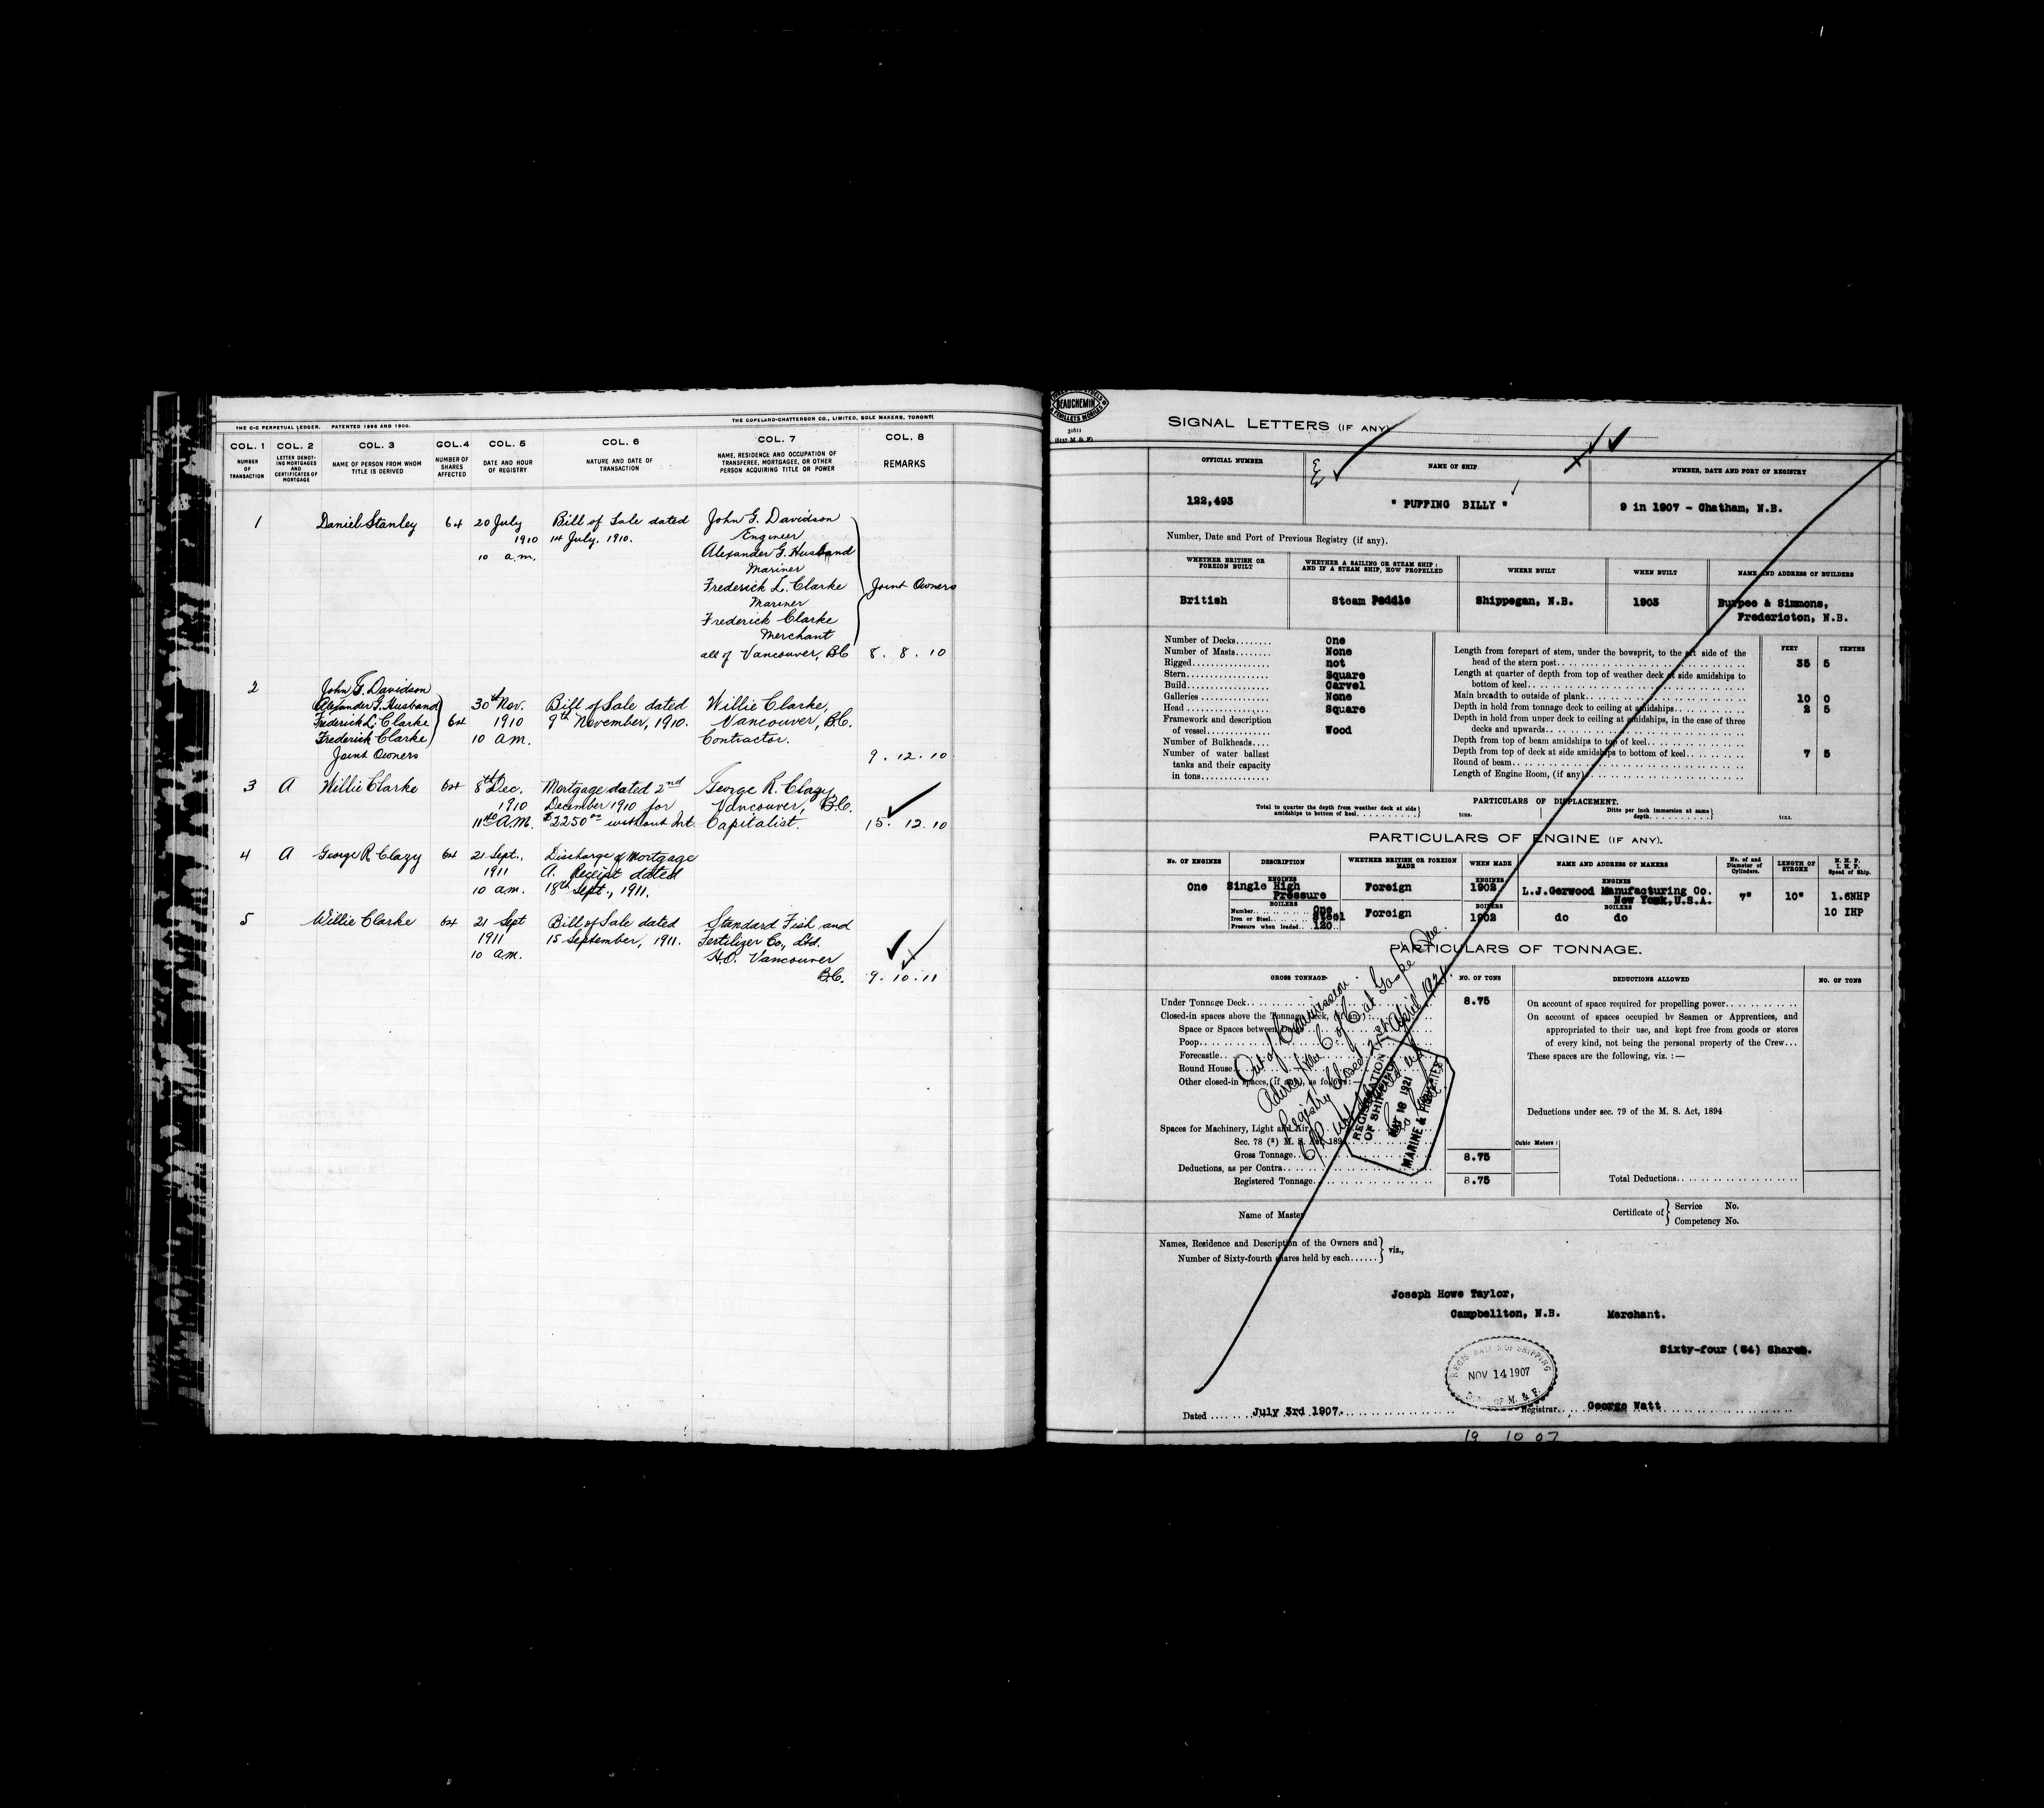 THE C-C PERPETUAL LEDGER. PATENTED 1896 AND 1900.
THE COPELAND-CHATTERSON CO., LIMITED, SOLE MAKERS, TORONTO.
COL. 1 COL. 2 COL. 3 COL. 4 COL. 5 COL. 6 COL. 7 COL. 8
NUMBER OF TRANSACTION
LETTER DENOTING MORTGAGES AND CERTIFICATES OF MORTGAGE
NAME OF PERSON FROM WHOM TITLE IS DERIVED
NUMBER OF SHARES AFFECTED
DATE AND HOUR OF REGISTRY
NATURE AND DATE OF TRANSACTION
NAME, RESIDENCE AND OCCUPATION OF TRANSFEREE, MORTGAGEE, OR OTHER PERSON ACQUIRING TITLE OR POWER
REMARKS
1 Daniel Stanley 64 20 July Bill of Sale dated John G. Davidson
1910 1st July, 1910. Engineer
10 a.m. Alexander G. Husband
Mariner
Frederick L. Clarke Joint Owners
Mariner
Frederick Clarke
Merchant
all of Vancouver, B.C. 8. 8. 10
2 John G. Davidson
Alexander G. Husband 30th Nov. Bill of Sale dated Willie Clarke,
Frederick L. Clarke 64 1910 9th November, 1910. Vancouver, B.C.
Frederick Clarke 10 a.m. Contractor.
Joint Owners 9. 12. 10
3 A Willie Clarke 64 8th Dec. Mortgage dated 2nd George R. Clazy
1910 December 1910 for Vancouver, B.C.
11 A.M. $2250.00 without Int. Capitalist. 15. 12. 10
4 A George R. Clazy 64 21 Sept., Discharge of Mortgage
1911 A. Receipt dated
10 a.m. 18th Sept., 1911.
5 Willie Clarke 64 21 Sept Bill of Sale dated Standard Fish and
1911 15 September, 1911. Fertilizer Co., Ltd.
10 a.m. H.O. Vancouver
B.C. 9. 10. 11
BEAUCHEMIN
31611
(6137 M & F)
SIGNAL LETTERS (IF ANY)
OFFICIAL NUMBER NAME OF SHIP NUMBER, DATE AND PORT OF REGISTRY
122,493 " PUFFING BILLY " 9 in 1907 - Chatham, N.B.
Number, Date and Port of Previous Registry (if any).
WHETHER BRITISH OR FOREIGN BUILT
WHETHER A SAILING OR STEAM SHIP; AND IF A STEAM SHIP, HOW PROPELLED
WHERE BUILT WHEN BUILT NAME AND ADDRESS OF BUILDERS
British Steam Paddle Shippegan, N.B. 1903 Burpee & Simmons,
Fredericton, N.B.
Number of Decks........ One
Number of Masts........ None
Rigged.................. not
Stern................... Square
Build................... Carvel
Galleries ............... None
Head.................... Square
Framework and description
of vessel............. Wood
Number of Bulkheads....
Number of water ballast
tanks and their capacity
in tons..............
FEET TENTHS
Length from forepart of stem, under the bowsprit, to the aft side of the
head of the stern post........ 35 5
Length at quarter of depth from top of weather deck at side amidships to
bottom of keel........
Main breadth to outside of plank........ 10 0
Depth in hold from tonnage deck to ceiling at amidships........ 2 5
Depth in hold from upper deck to ceiling at amidships, in the case of three
decks and upwards........
Depth from top of beam amidships to top of keel........
Depth from top of deck at side amidships to bottom of keel........ 7 5
Round of beam........
Length of Engine Room, (if any)........
PARTICULARS OF DISPLACEMENT.
Total to quarter the depth from weather deck at side amidships to bottom of keel........ tons.
Ditto per inch immersion at same depth........ tons.
PARTICULARS OF ENGINE (IF ANY).
No. OF ENGINES DESCRIPTION WHETHER BRITISH OR FOREIGN MADE WHEN MADE NAME AND ADDRESS OF MAKERS No. of and Diameter of Cylinders. LENGTH OF STROKE N. H. P. I. H. P. Speed of Ship.
ENGINES ENGINES ENGINES
One Single High Pressure Foreign 1902 L.J.Gerwood Manufacturing Co. New York, U.S.A. 7" 10" 1.6NHP
BOILERS BOILERS BOILERS
Number........ One
Iron or Steel........ Steel Foreign 1902 do do 10 IHP
Pressure when loaded.. 120
PARTICULARS OF TONNAGE.
GROSS TONNAGE NO. OF TONS DEDUCTIONS ALLOWED NO. OF TONS
Under Tonnage Deck........ 8.75
Closed-in spaces above the Tonnage Deck, if any
Space or Spaces between Decks
Poop........
Forecastle........
Round House
Other closed-in spaces, (if any), as follows:
Spaces for Machinery, Light and Air
Sec. 78 (2) M. S. Act, 1894
Gross Tonnage........ 8.75
Deductions, as per Contra........
Registered Tonnage........ 8.75
On account of space required for propelling power........
On account of spaces occupied by Seamen or Apprentices, and
appropriated to their use, and kept free from goods or stores
of every kind, not being the personal property of the Crew...
These spaces are the following, viz. :—
Deductions under sec. 79 of the M. S. Act, 1894
Cubic Meters:
Total Deductions........
Out of Commission
Advice from C. of C. at Gaspé Que.
Registry Closed 21st April 1921.
REGISTRATION OF SHIPPING
MAY 18 1921
MARINE & FISHERIES
Name of Master
Certificate of Service No.
Competency No.
Names, Residence and Description of the Owners and
Number of Sixty-fourth shares held by each...... viz.,
Joseph Howe Taylor,
Campbellton, N.B. Merchant.
Sixty-four (64) Shares.
REGISTRATION OF SHIPPING
NOV 14 1907
DEPT OF M. & F.
Dated ...... July 3rd 1907. Registrar.... George Watt
19 10 07